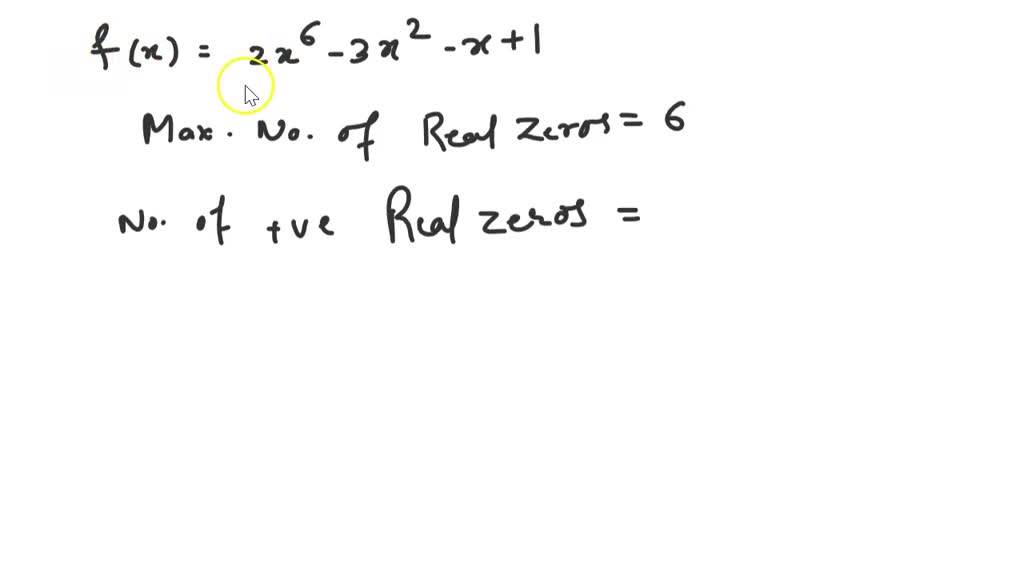 f(x) = 2x⁶ - 3x² - x + 1
Max. No. of Real zeros = 6
No. of +ve Real zeros =